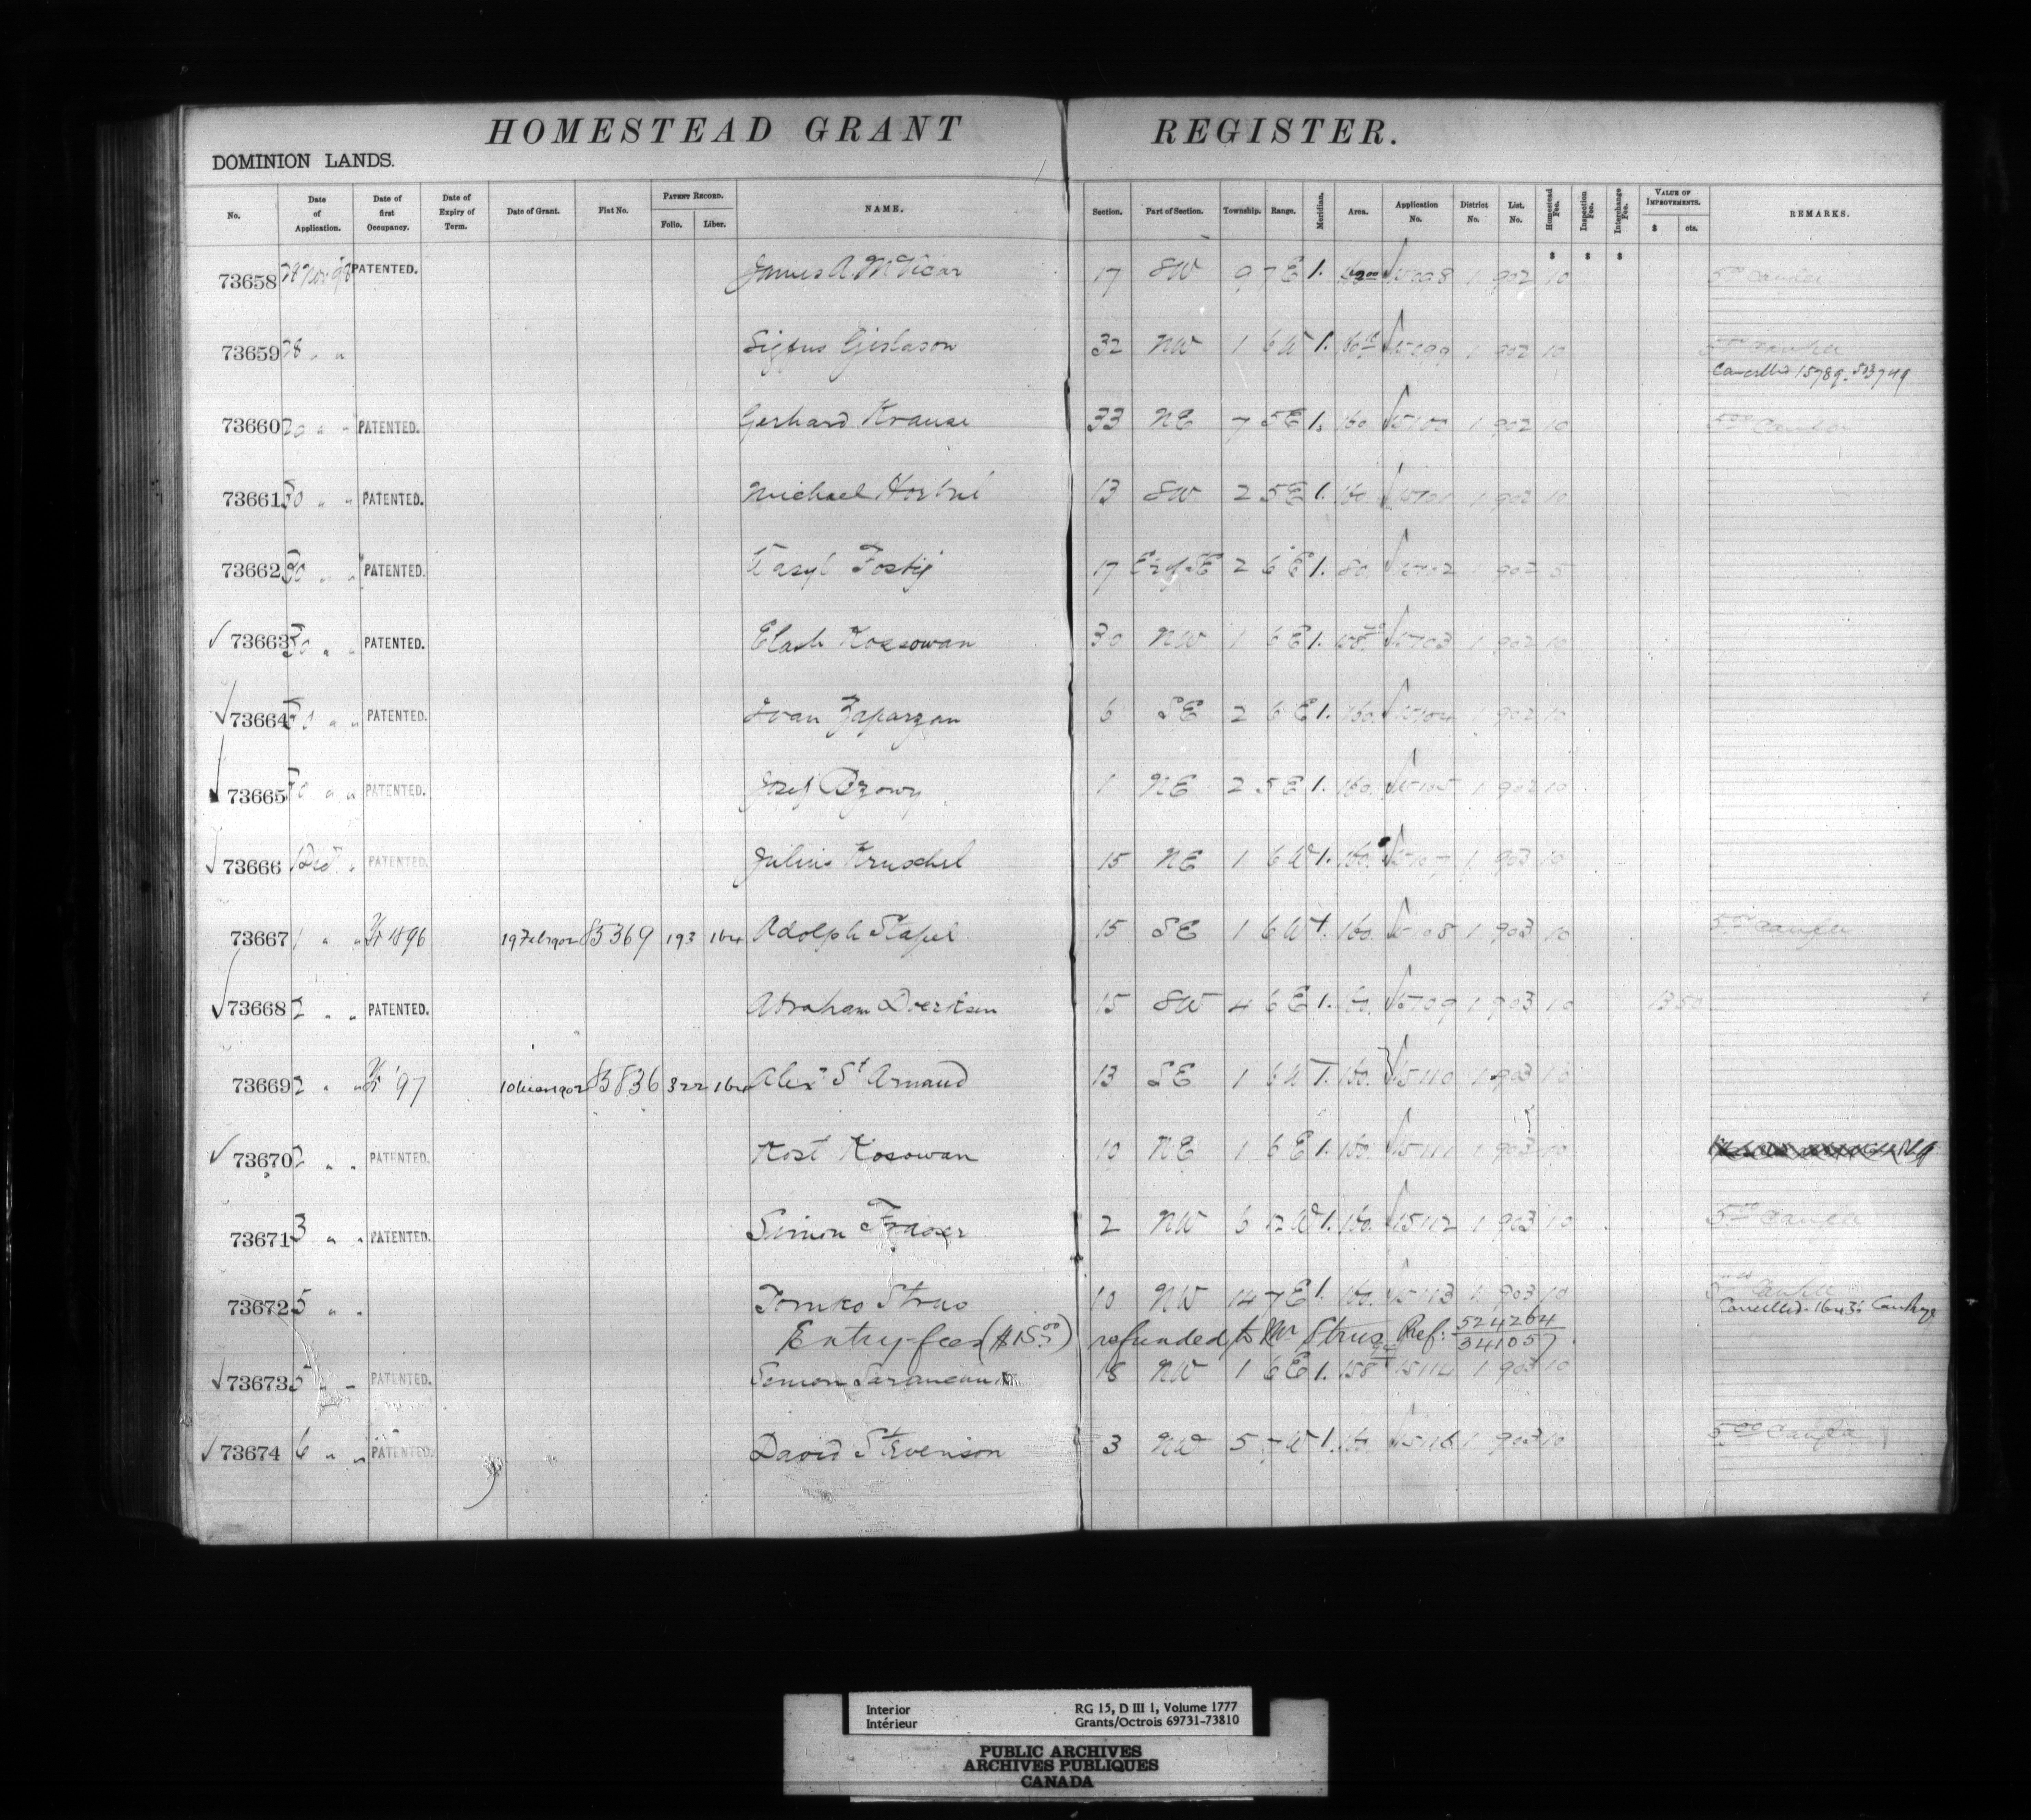 HOMESTEAD GRANT REGISTER.
DOMINION LANDS.
No. Date of Application. Date of first Occupancy. Date of Expiry of Term. Date of Grant. Fiat No. PATENT RECORD. Folio. Liber. NAME. Section. Part of Section. Township. Range. Meridian. Area. Application No. District No. List. No. Homestead Fee. Inspection Fee. Interchange Fee. VALUE OF IMPROVEMENTS. $ cts. REMARKS.
$ $ $
73658 28 Nov 98 PATENTED. James A. McVicar 17 SW 9 7 E 1. 15098 1 902 10 5 00 Canfee
73659 28 " " Sigfus Gislason 32 NW 1 6 W 1. 15099 1 902 10
Cancelled 15789-503749
73660 " " PATENTED. Gerhard Krause 33 NE 7 5 E 1. 160 15100 1 902 10
73661 30 " " PATENTED. Michael 13 SW 2 5 E 1. 160 15101 1 902 10
73662 30 " " PATENTED. 17 E½ of SE 2 6 E 1. 80. 15102 1 902 5
✓ 73663 30 " " PATENTED. Elash Kossowan 30 NW 1 6 E 1. 15103 1 902 10
✓ 73664 30 " " PATENTED. Ivan Zaparzan 6 SE 2 6 E 1. 160. 15104 1 902 10
✓ 73665 30 " " PATENTED. Josef Bzowy 1 NE 2 5 E 1. 160. 15105 1 902 10
✓ 73666 1 Dec " PATENTED. Julius Kruschel 15 NE 1 6 W 1. 160. 15107 1 903 10
73667 1 " " 1896 19 Feb 1902 85369 193 164 Adolph Stapel 15 SE 1 6 W 1. 160. 15108 1 903 10
✓ 73668 2 " " PATENTED. Abraham Doerksen 15 SW 4 6 E 1. 160. 15109 1 903 10 13 50
73669 2 " " '97 10 1902 83836 322 164 Alexr St Arnaud 13 SE 1 6 W 1. 160. 15110 1 903 10
✓ 73670 2 " " PATENTED. Kost Kosowan 10 NE 1 6 E 1. 160. 15111 1 903 10
73671 3 " " PATENTED. Simon Fraser 2 NW 6 12 W 1. 160. 15112 1 903 10
73672 5 " " Tomko Strus 10 NW 14 7 E 1. 160. 15113 1 903 10
Entry-fees ($15.00) refunded to Mr Strus Ref: 524264 341057
✓ 73673 5 " " PATENTED. 18 NW 1 6 E 1. 158 15114 1 903 10
✓ 73674 6 " " PATENTED. David Stevenson 3 NW 5 7 W 1. 160. 15116 1 903 10
Interior RG 15, D III 1, Volume 1777
Intérieur Grants/Octrois 69731-73810
PUBLIC ARCHIVES
ARCHIVES PUBLIQUES
CANADA